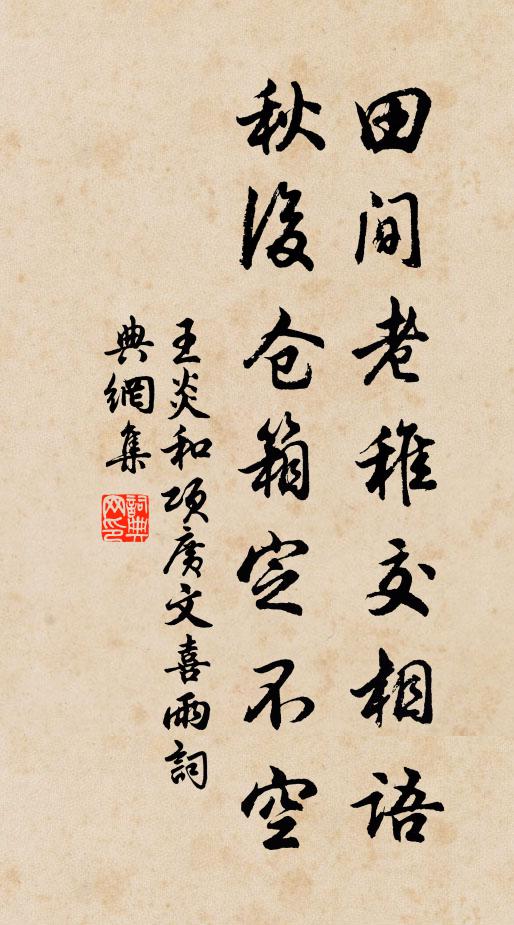 田间老稚交相語
秋後仓箱定不空
王炎和项廣文喜雨詞
典網集
詞典
网印